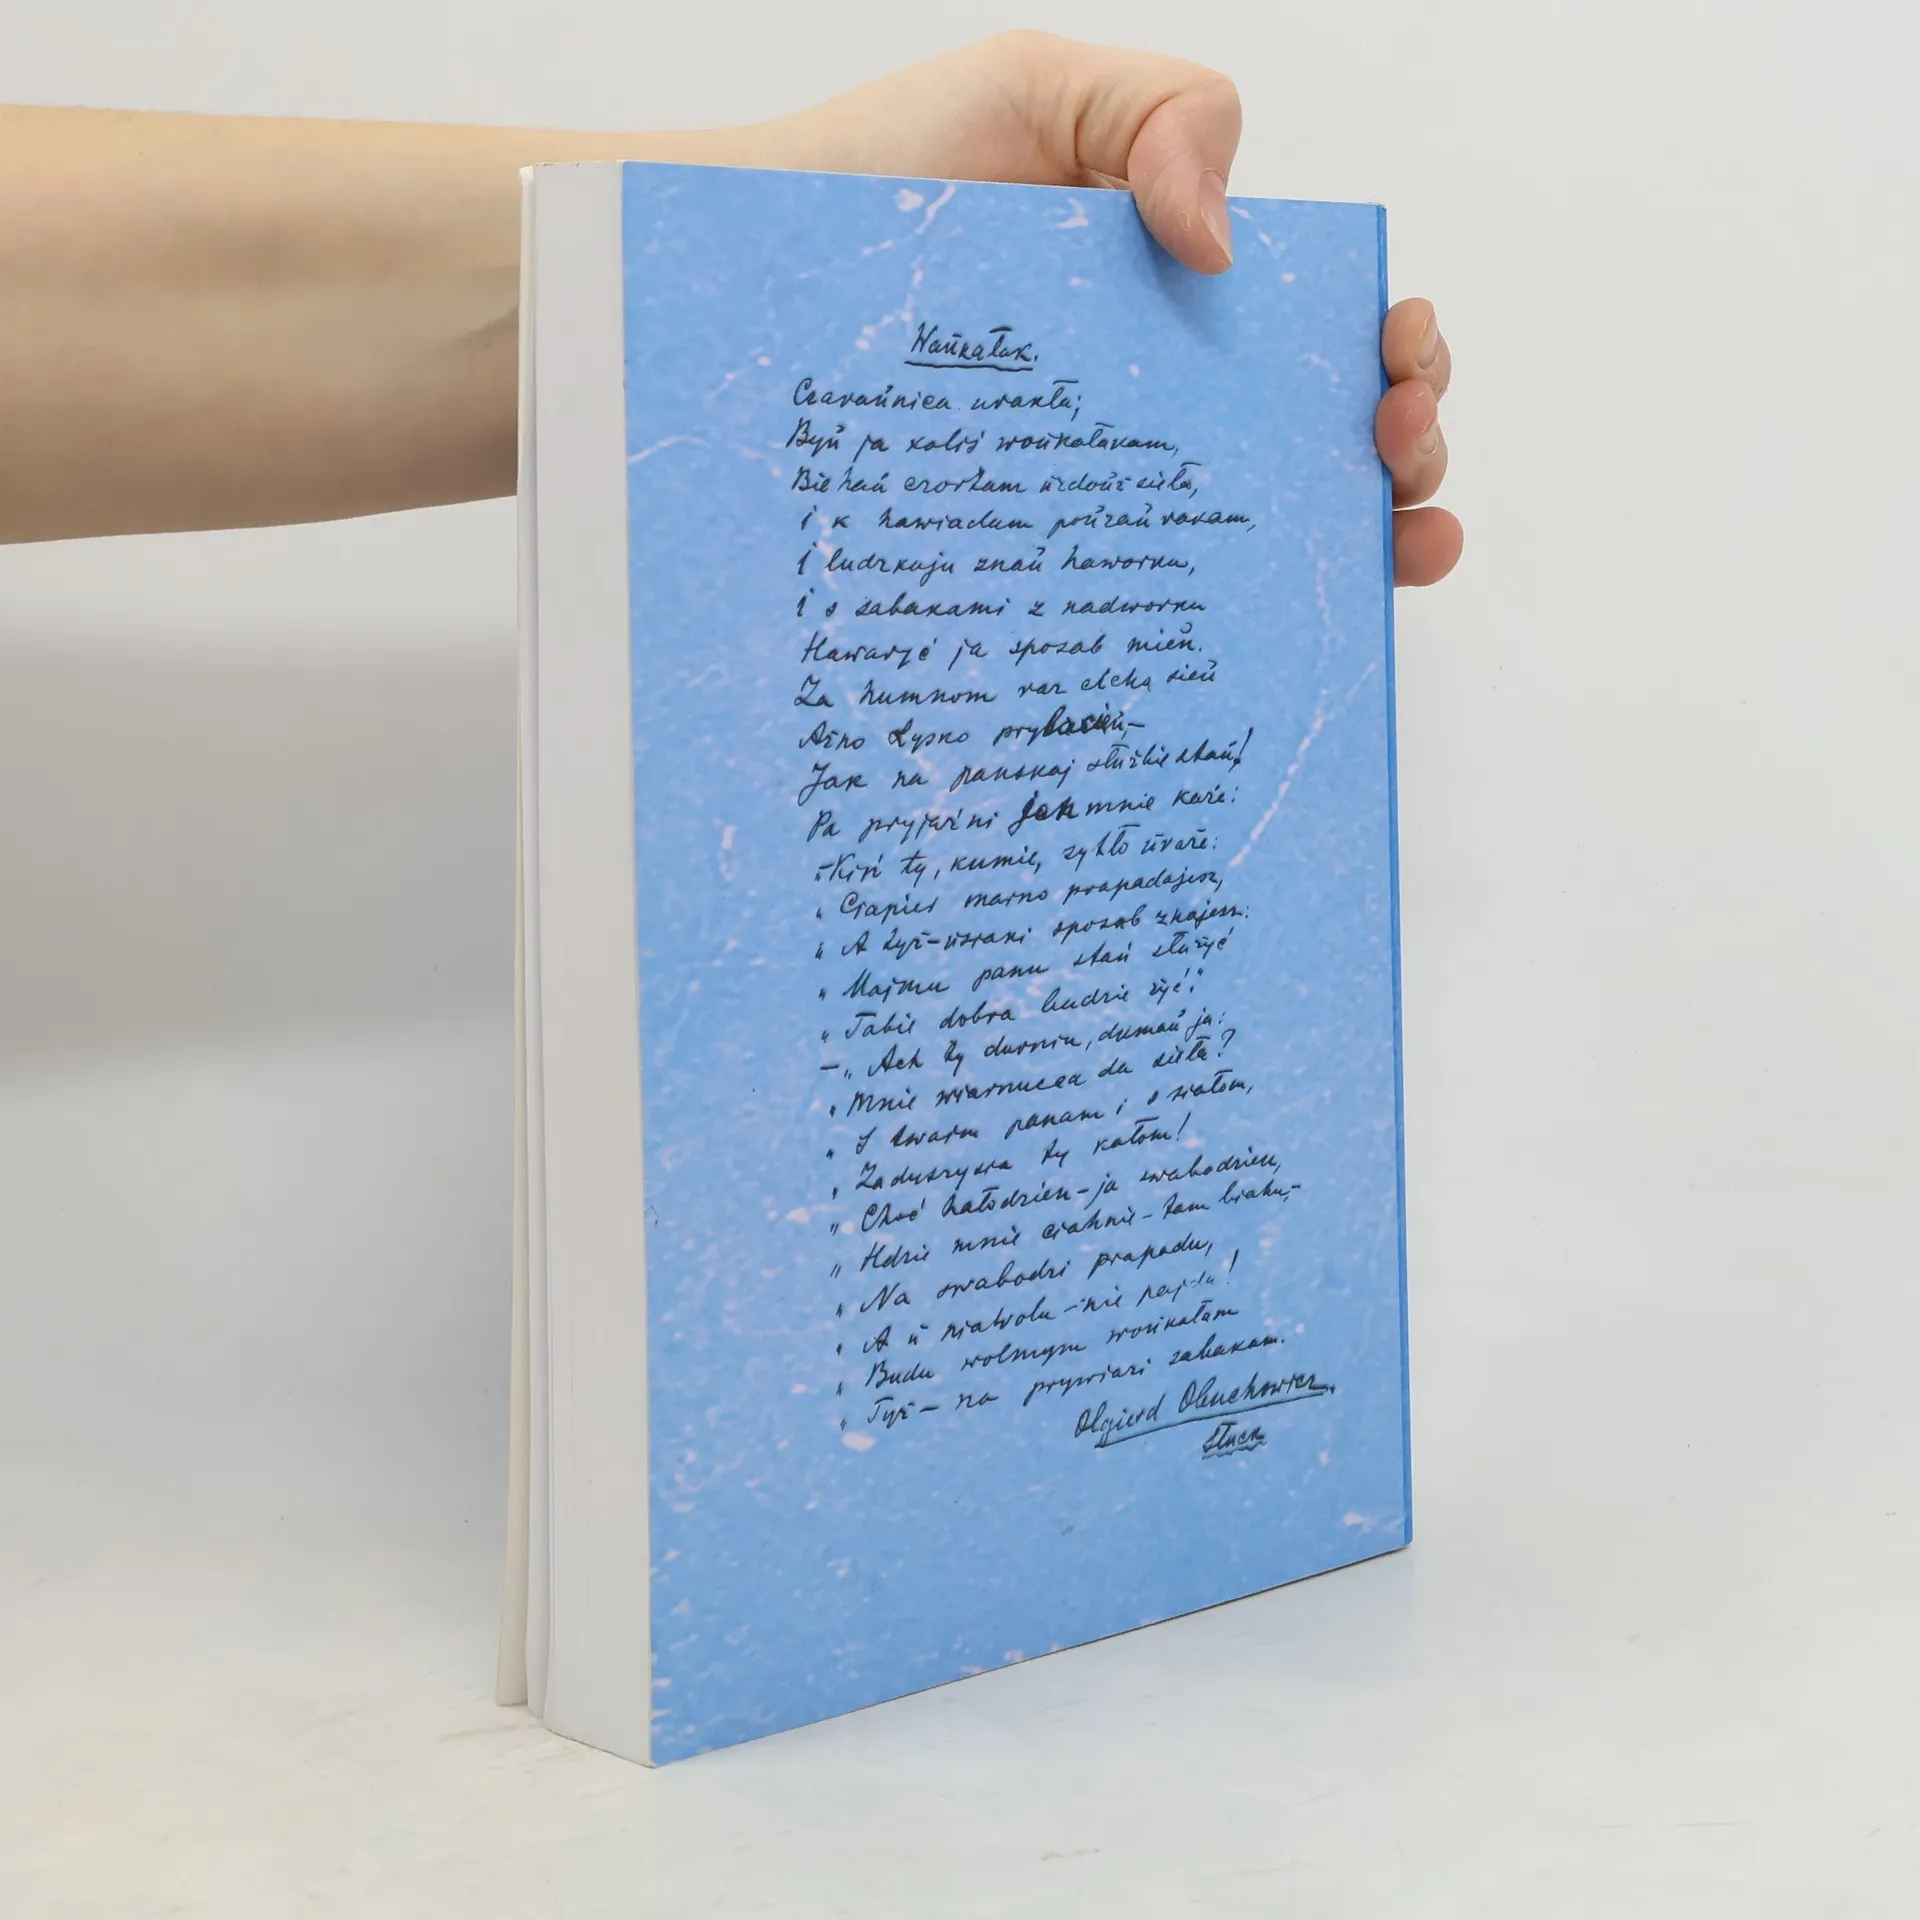 Waŭkałak.
Czaraŭnica urakła;
Byŭ ja kaliś woŭkałakam,
Biehaŭ czortam ŭzdoŭż sieła,
i k hawiadam poŭzaŭ rakam,
i ludzkuju znaŭ haworku,
i s sabakami z nadworku
Hawaryć ja sposab mieŭ.
Za humnom raz cicha sieŭ
Ażno Łysko prybacieŭ,—
Jak na panskaj służbie staŭ!
Pa pryjaźni jon mnie każe:
„Kiń ty, kumie, zyłło ŭraże:
„Ciapier marno prapadajesz,
„A żyż-ŭsraki sposab znajesz:
„Majmu panu stań służyć
„Tabie dobra budzie żyć."
—„Ach ty durniu, dumaŭ ja:
„Mnie wiarnucca da sieła?
„S twaim panam i s siałom,
„Zaduszysia ty kałom!
„Choć hałodzien—ja swabodzien,
„Hdzie mnie ciahnie—tam biahu,—
„Na swabodzi prapadu,
„A ŭ niawolu—nie pajdu!
„Budu wolnym woŭkałam
„Tyż—na prywiazi sabakam.
Olgierd Obuchowicz.
Słuck